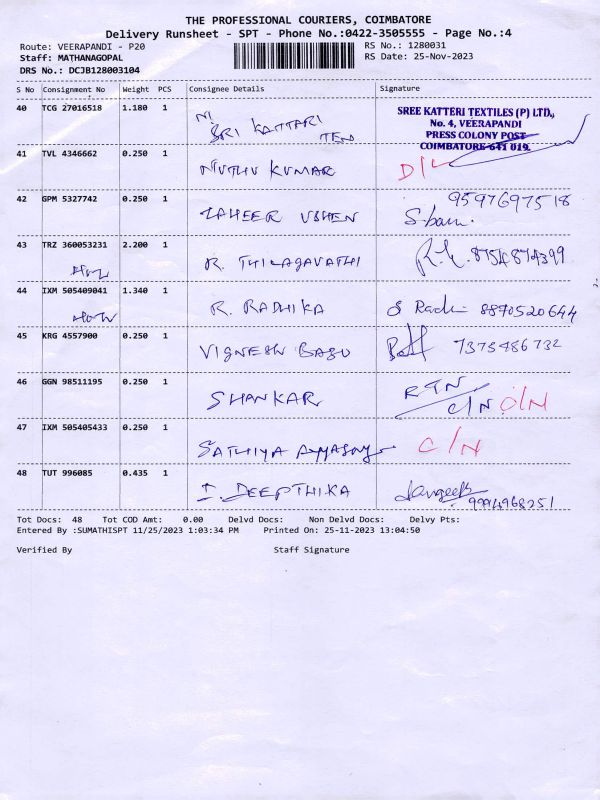 THE PROFESSIONAL COURIERS, COIMBATORE
Delivery Runsheet - SPT - Phone No.:0422-3505555 - Page No.:4
Route: VEERAPANDI - P20 RS No.: 1280031
Staff: MATHANAGOPAL RS Date: 25-Nov-2023
DRS No.: DCJB128003104
S No Consignment No Weight PCS Consignee Details Signature
40 TCG 27016518 1.180 1 SRI KATTARI TEX
SREE KATTERI TEXTILES (P) LTD.,
No. 4, VEERAPANDI
PRESS COLONY POST
COIMBATORE-641 019.
41 TVL 4346662 0.250 1 MUTHU KUMAR D/L
42 GPM 5327742 0.250 1 ZAHEER 9597697518
43 TRZ 360053231 2.200 1 R. THILAGAVATHI 8754874399
44 IXM 505409041 1.340 1 R. RADHIKA 8870520644
45 KRG 4557900 0.250 1 VIGNESH BABU 7373486732
46 GGN 98511195 0.250 1 SHANKAR RTN
C/N
47 IXM 505405433 0.250 1 SATHIYA C/N
48 TUT 996085 0.435 1 I. DEEPTHIKA 9994968251
Tot Docs: 48 Tot COD Amt: 0.00 Delvd Docs: Non Delvd Docs: Delvy Pts:
Entered By :SUMATHISPT 11/25/2023 1:03:34 PM Printed On: 25-11-2023 13:04:50
Verified By Staff Signature